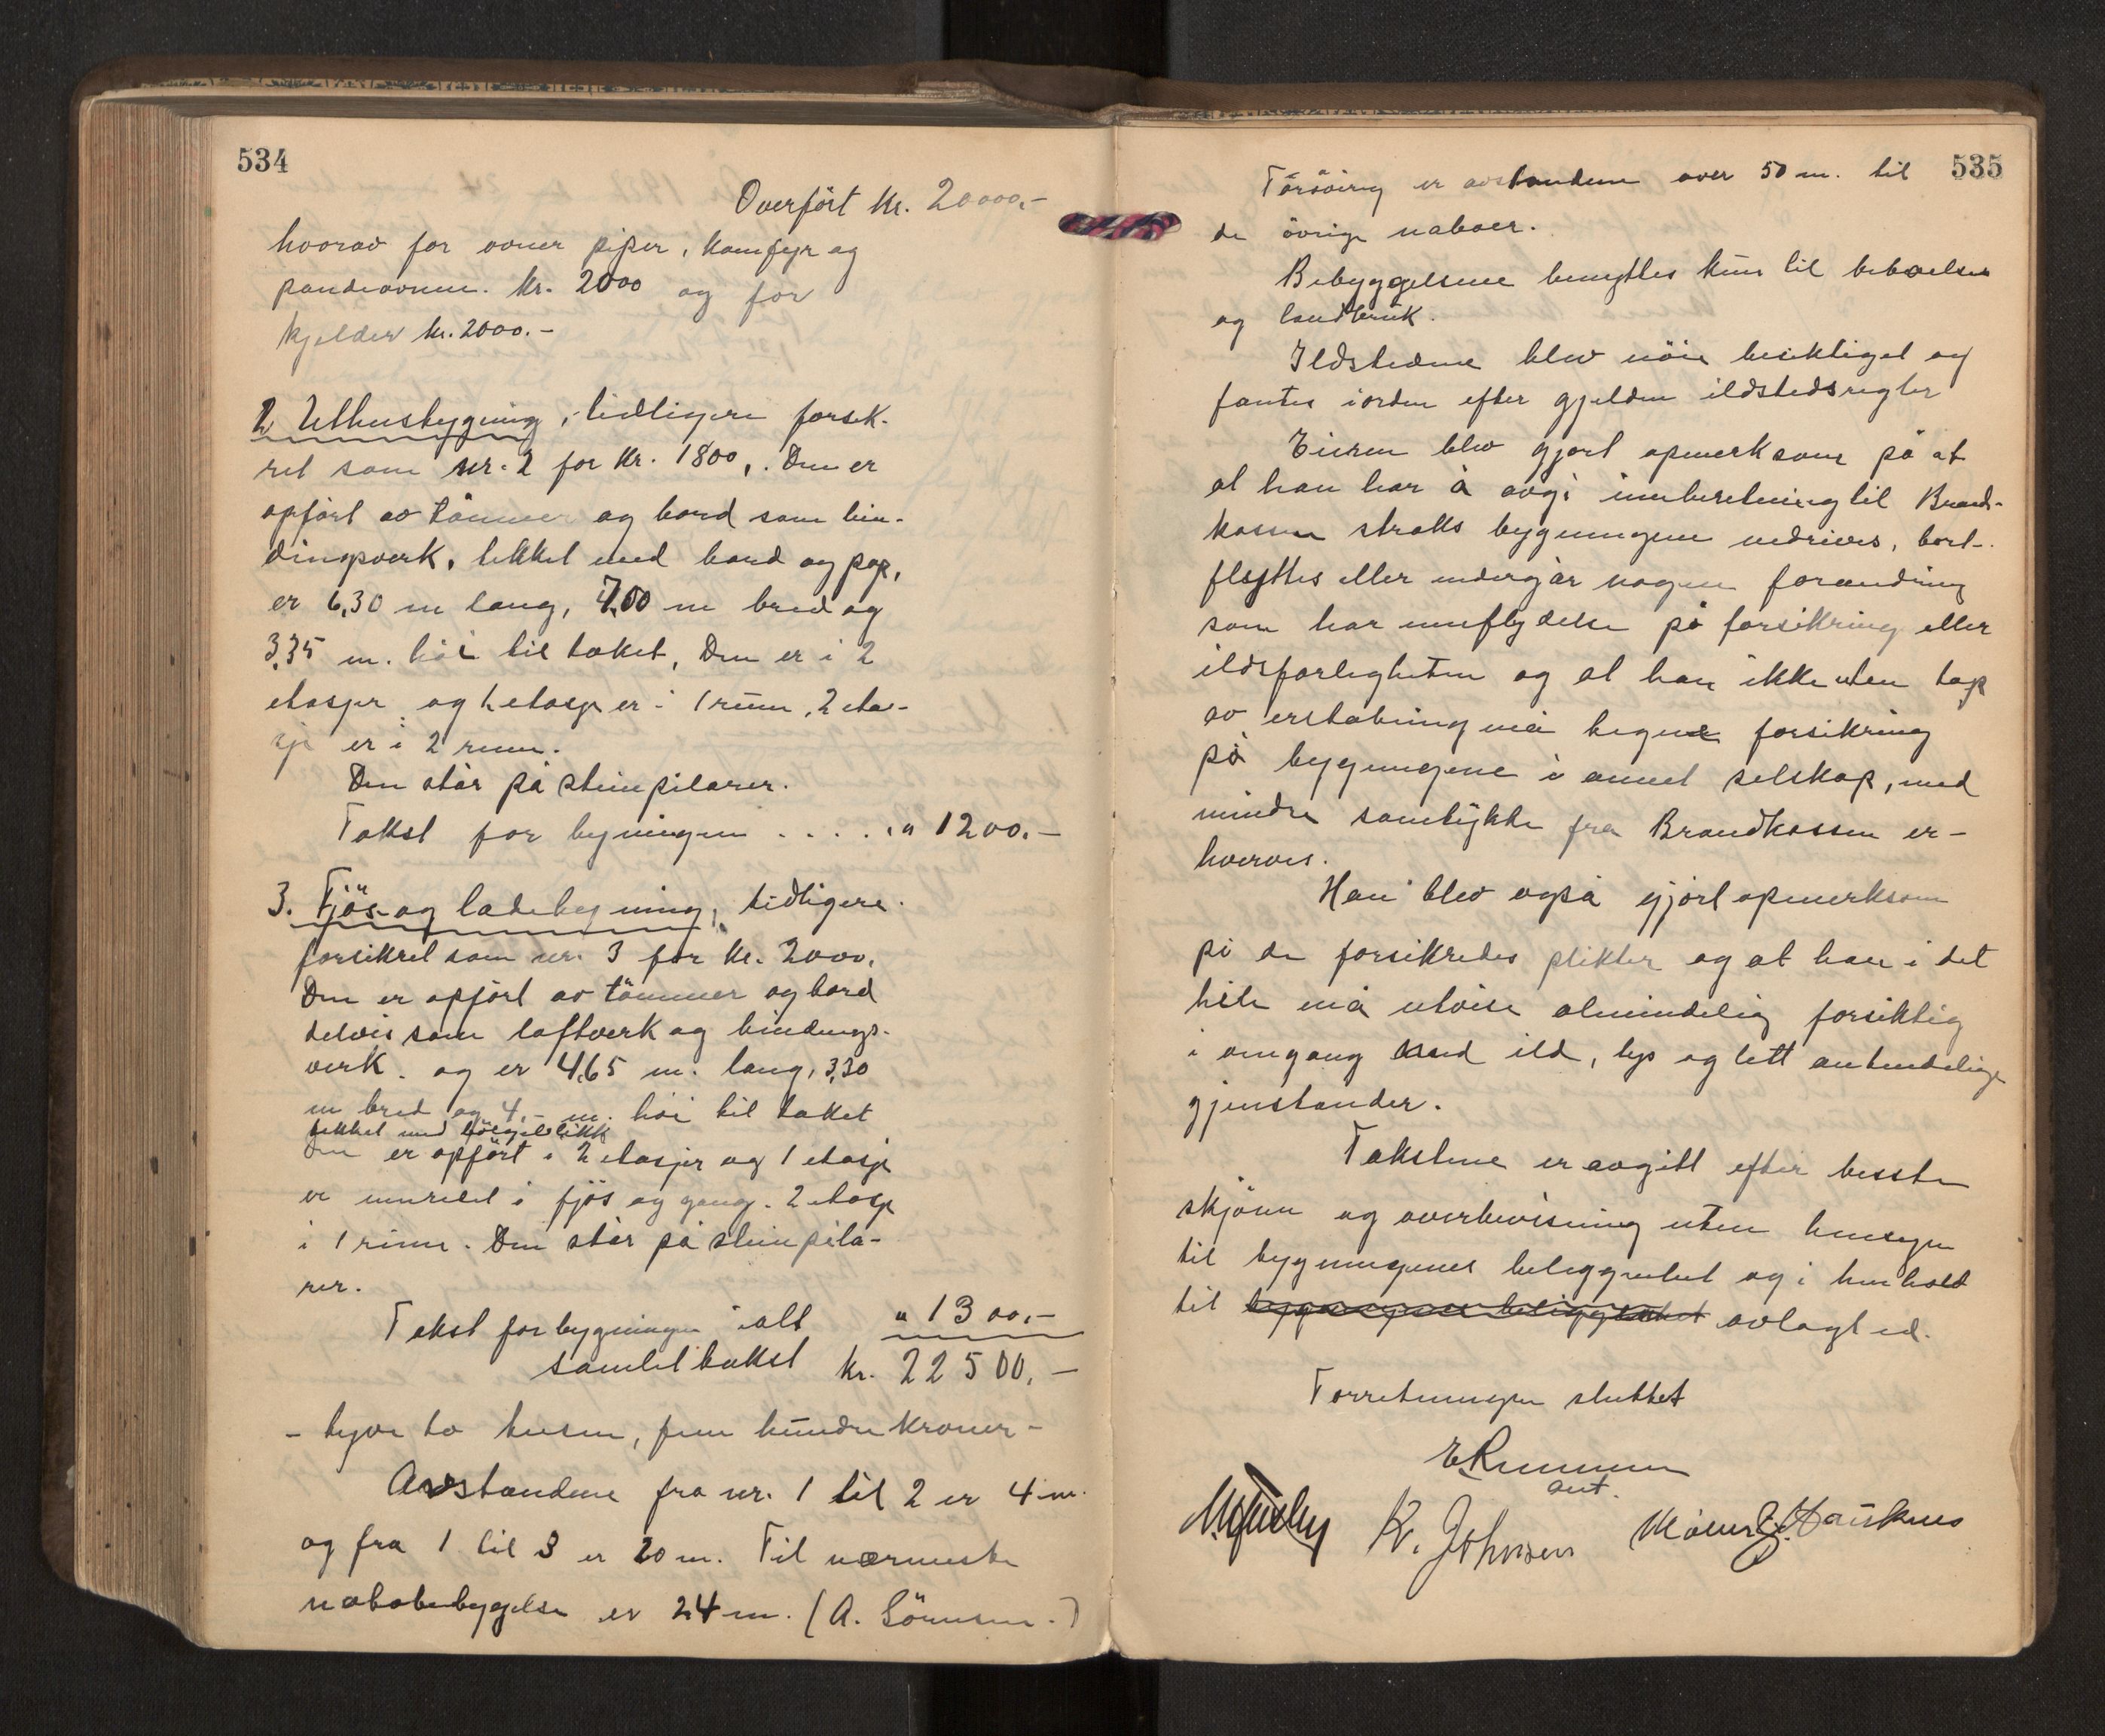 534
Overført kr. 20000,-
hvorav for ovner piper, komfyr og
pandeovnen. kr. 2000 og for
kjelder kr. 2000.-
2 Uthusbygning, tidligere forsik-
ret som nr. 2 for kr. 1800,. Den er
opført av tømmer og bord som bin-
dingsverk, tekket med bord og pap,
er 6,30 m lang, 4,00 m bred og
3,35 m. høi til taket, Den er i 2
etasjer og 1 etasje er i 1 rum, 2 eta-
sje er i 2 rum.
Den står på stenpilarer.
Takst for bygningen . . . . . " 1200.-
3. Fjös- og ladebygning, tidligere
forsikret som nr. 3 for kr. 2000,
Den er opført av tömmer og bord
delvis som laftverk og bindings-
verk. og er 4,65 m. lang, 3,30
m bred og 4,- m. höi til taket
tekket med bölgeblikk
Den er opfört i 2 etasjer og 1 etasje
er innredet i fjös og gang. 2 etasje
i 1 rum. Den står på stenpila-
rer.
Takst for bygningen ialt " 1300,-
samlet takst kr. 22500,-
- tyve to tusen, fem hundre kroner -
Avstandene fra nr. 1 til 2 er 4 m.
og fra 1 til 3 er 20 m. Til nærmeste
nabobebyggelse er 24 m. (A. Sörensen.)
535
Forövrig er avstandene over 50 m. til
de övrige naboer.
Bebyggelsene benyttes kun til beboelse
og landbruk.
Ildstedene blev nöie besiktiget og
fantes iorden efter gjelden ildstedsregler
Eieren blev gjort opmerksom på at
at han har å avgi innberetning til Brand-
kassen straks bygningene nedrives, bort-
flyttes eller undergår nogen forandring
som har innflydelse på forsikring eller
ildsfarligheten og at han ikke uten tap
av erstatning må tegne forsikring
på bygningene i annet selskap, med
mindre samtykke fra Brandkassen er-
hverves.
Han blev også gjort opmerksom
på de forsikredes plikter og at han i det
hele må utvise almindelig forsiktig
i omgang med ild, lys og lett antendelige
gjenstander.
Takstene er avgitt efter besste
skjönn og overbevisning uten hensyn
til bygningenes beliggenhet og i henhold
til bygningenes beliggenhet avlagt ed.
Forretningen sluttet
K. Johnsen